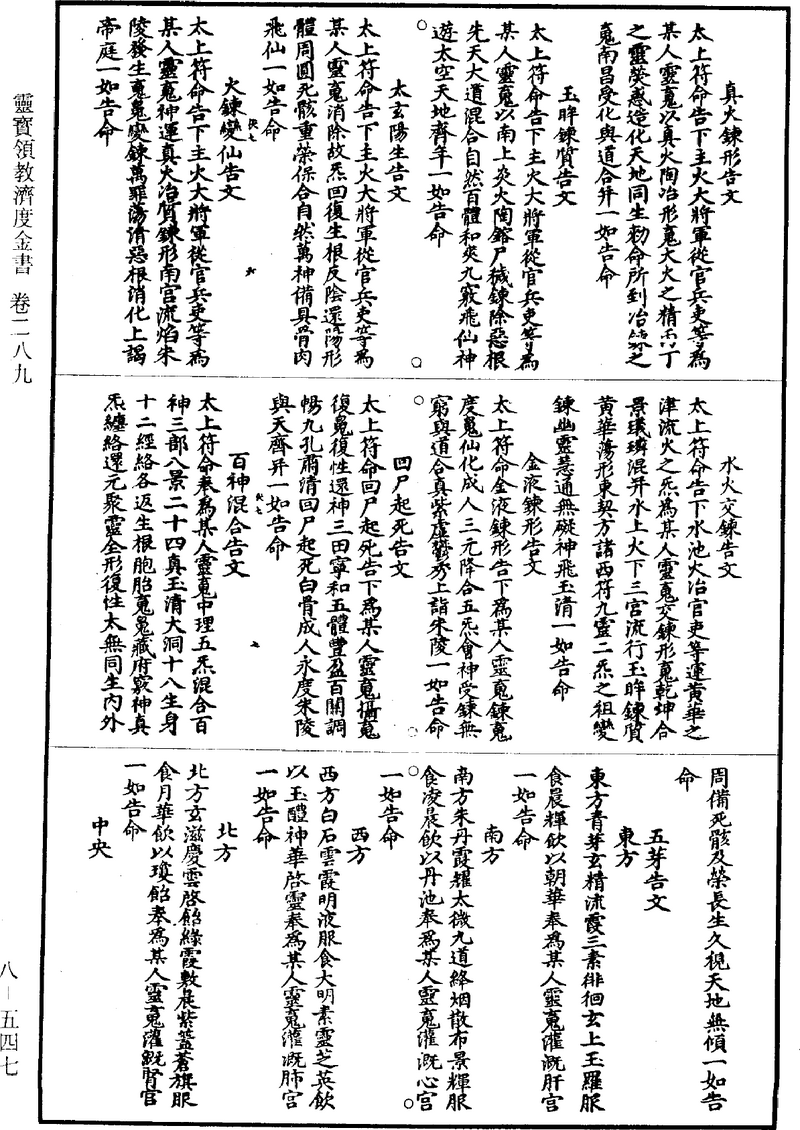 靈寶領教濟度金書 卷二八九
八—五四七
真火鍊形告文
太上符命告下主火大將軍從官兵吏等為
某人靈䰟以真火陶冶形䰟大火之精丙丁
之靈熒惑造化天地同生勑命所到冶鍊之
䰟南昌受化與道合并一如告命
玉眸鍊質告文
太上符命告下主火大將軍從官兵吏等為
某人靈䰟以南上炎火陶鎔尸穢鍊除惡根
先天大道混合自然百體和爽九竅飛仙神
遊太空天地齊年一如告命
太玄陽生告文
太上符命告下主火大將軍從官兵吏等為
某人靈䰟消除故炁回復生根反陰還陽形
體周圓死骸重榮保合自然萬神備具骨肉
飛仙一如告命
火鍊變仙告文
太上符命告下主火大將軍從官兵吏等為
某人靈䰟神運真火冶質鍊形南宮流焰朱
陵發生䰟䰟變鍊萬罪蕩清惡根消化上謁
帝庭一如告命
水火交鍊告文
太上符命告下水池火冶官吏等運黃華之
津流火之炁為某人靈䰟交鍊形䰟乾坤合
景彧璘混并水上火下三宮流行玉眸鍊質
黃華蕩形東契方諸西符九靈二炁之祖變
鍊幽靈慧通無礙神飛玉清一如告命
金液鍊形告文
太上符命金液鍊形告下為某人靈䰟鍊䰟
度䰟仙化成人三元降合五炁會神受鍊無
窮與道合真紫虛鬱秀上詣朱陵一如告命
回尸起死告文
太上符命回尸起死告下為某人靈䰟攝䰟
復䰟復性還神三田寧和五體豐盈百關調
暢九孔肅清回尸起死白骨成人永度朱陵
與天齊昇一如告命
百神混合告文
太上符命奉為某人靈䰟中理五炁混合百
神三部八景二十四真玉清大洞十八生身
十二經絡各返生根胞胎䰟䰟藏府竅神真
炁纏絡還元聚靈全形復性太無同生內外
周備死骸及榮長生久視天地無傾一如告
命
五芽告文
東方
東方青芽玄精流霞三素徘徊玄上玉羅服
食晨輝飲以朝華奉為某人靈䰟灌溉肝宮
一如告命
南方
南方朱丹霞耀太微九道絳烟散布景輝服
食凌晨飲以丹池奉為某人靈䰟灌溉心宮
一如告命
西方
西方白石雲霞明液服食大明素靈芝英飲
以玉醴神華啓靈奉為某人靈䰟灌溉肺宮
一如告命
北方
北方玄滋慶雲啓飴綠霞敷晨紫蓋蒼旗服
食月華飲以瓊飴奉為某人靈䰟灌溉腎宮
一如告命
中央